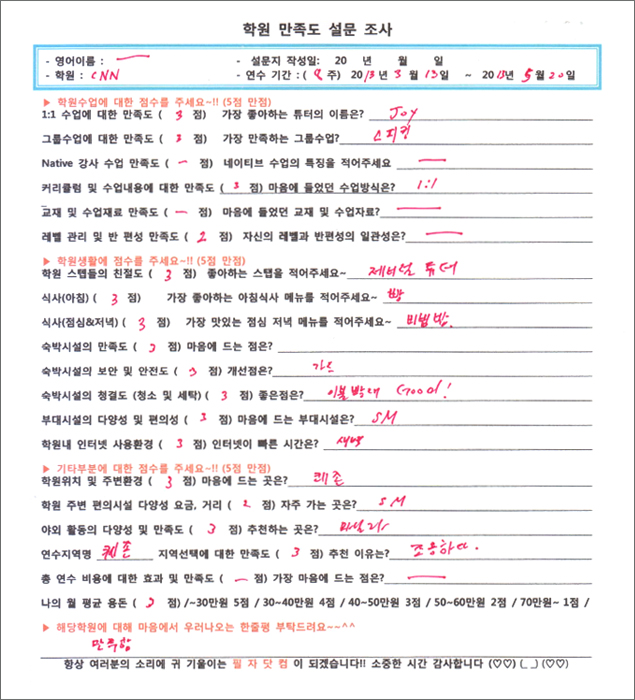 학원 만족도 설문 조사
- 영어이름 : — - 설문지 작성일: 20 년 월 일
- 학원 : CNN - 연수 기간 : ( 8 주) 2013년 3월 13일 ~ 2013년 5월 20일
▶ 학원수업에 대한 점수를 주세요~!! (5점 만점)
1:1 수업에 대한 만족도 ( 3 점) 가장 좋아하는 튜터의 이름은? Joy
그룹수업에 대한 만족도 ( 3 점) 가장 만족하는 그룹수업? 스피킹
Native 강사 수업 만족도 ( — 점) 네이티브 수업의 특징을 적어주세요 —
커리큘럼 및 수업내용에 대한 만족도 ( 3 점) 마음에 들었던 수업방식은? 1:1
교재 및 수업재료 만족도 ( — 점) 마음에 들었던 교재 및 수업자료? —
레벨 관리 및 반 편성 만족도 ( 2 점) 자신의 레벨과 반편성의 일관성은? —
▶ 학원생활에 점수를 주세요~!! (5점 만점)
학원 스텝들의 친절도 ( 3 점) 좋아하는 스탭을 적어주세요~ 제너럴 튜터
식사(아침) ( 3 점) 가장 좋아하는 아침식사 메뉴를 적어주세요~ 빵
식사(점심&저녁) ( 3 점) 가장 맛있는 점심 저녁 메뉴를 적어주세요~ 비빔밥.
숙박시설의 만족도 ( 3 점) 마음에 드는 점은?
숙박시설의 보안 및 안전도 ( 3 점) 개선점은? 가드
숙박시설의 청결도 (청소 및 세탁) ( 3 점) 좋은점은? 이불빨래 Good!
부대시설의 다양성 및 편의성 ( 3 점) 마음에 드는 부대시설은? SM
학원내 인터넷 사용환경 ( 3 점) 인터넷이 빠른 시간은? 새벽
▶ 기타부분에 대한 점수를 주세요~!! (5점 만점)
학원위치 및 주변환경 ( 3 점) 마음에 드는 곳은? 퀘존
학원 주변 편의시설 다양성 요금, 거리 ( 2 점) 자주 가는 곳은? SM
야외 활동의 다양성 및 만족도 ( 3 점) 추천하는 곳은? 마닐라
연수지역명 퀘존 지역선택에 대한 만족도 ( 3 점) 추천 이유는? 조용하다.
총 연수 비용에 대한 효과 및 만족도 ( — 점) 가장 마음에 드는 점은? —
나의 월 평균 용돈 ( 3 점) /~30만원 5점 / 30~40만원 4점 / 40~50만원 3점 / 50~60만원 2점 / 70만원~ 1점 /
▶ 해당학원에 대해 마음에서 우러나오는 한줄평 부탁드려요~~^^
만족함
항상 여러분의 소리에 귀 기울이는 필 자 닷 컴 이 되겠습니다!! 소중한 시간 감사합니다 (♡♡) (_ _) (♡♡)